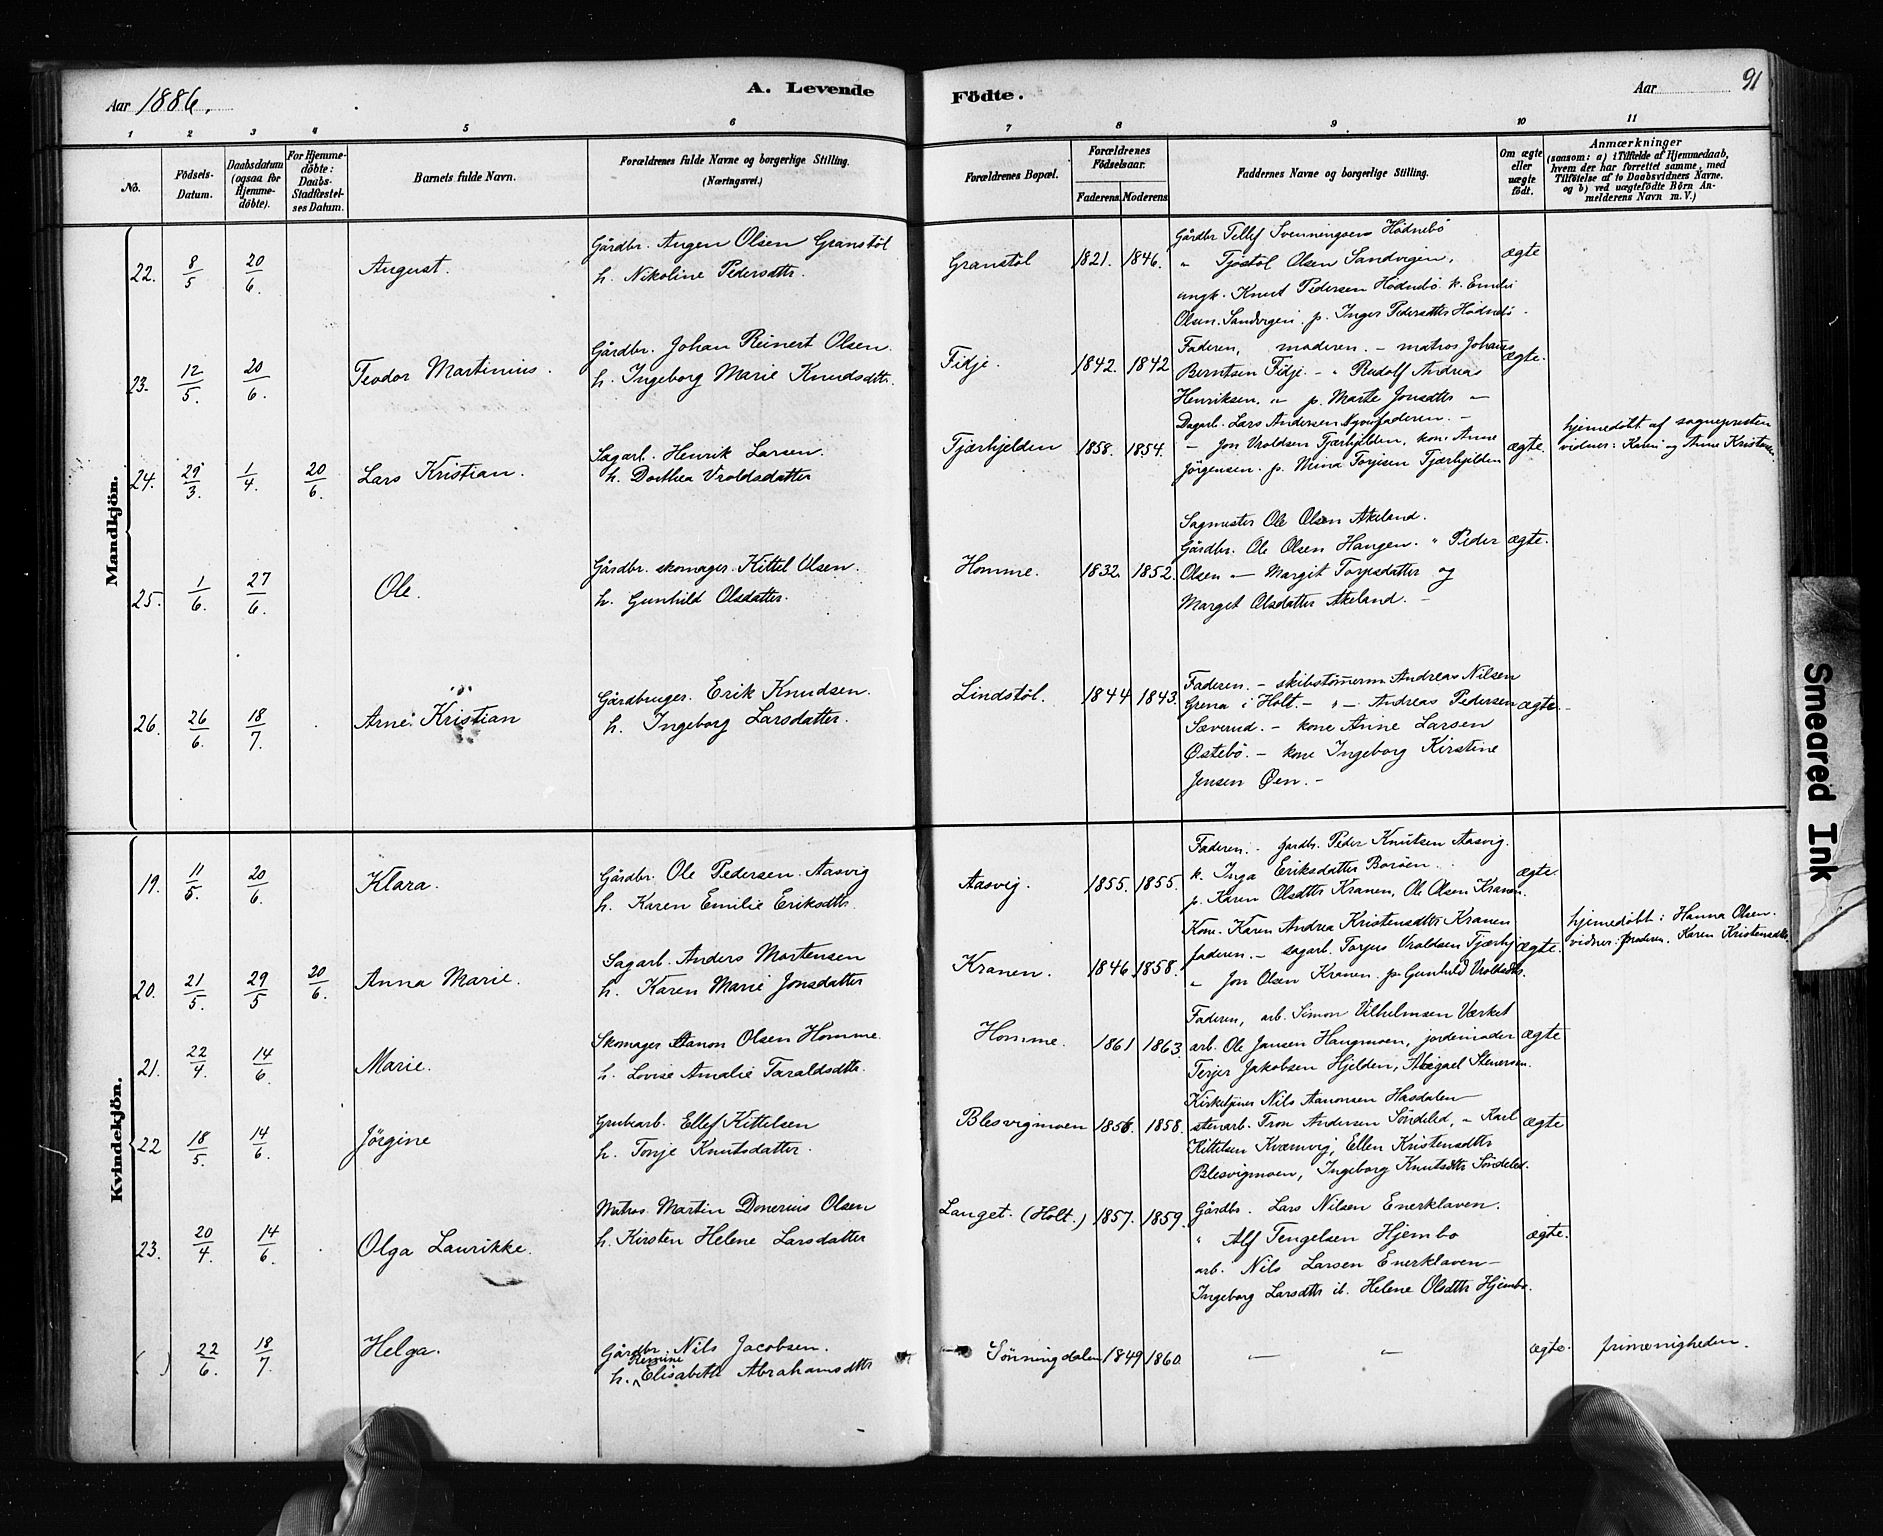 Aar 1886.
A. Levende
Födte.
Aar
91
1 2 3 4 5 6 7 8 9 10 11
No.
Födsels-Datum.
Daabsdatum (ogsaa for Hjemme-döbte).
For Hjemme-döbte: Daabs-Stadfæstel-ses Datum.
Barnets fulde Navn.
Forældrenes fulde Navne og borgerlige Stilling. (Næringsvei.)
Forældrenes Bopæl.
Forældrenes Födselsaar.
Faderens. Moderens.
Faddernes Navne og borgerlige Stilling.
Om ægte eller uægte födt.
Anmærkninger
(saasom: a) i Tilfælde af Hjemmedaab, hvem der har forrettet samme, med Tilföielse af to Daabsvidners Navne, og b) ved uægtefödte Börn An-melderens Navn m. V.)
Mandkjön.
22. 8/5 20/6. August.
Gårdbr. Augen Olsen Granstöl
h. Nikoline Pedersdttr.
Granstöl 1821. 1846.
Gårdbr Tellef Svenningsens Hödnebö
" Tjöstöl Olsen Sandvigen,
ungk. Knut Pedersen Hödnebö. k. Emilie
Olsen. Sandvigen. p. Inger Pedersdttr Hödnebö.
ægte
23. 12/5. 20/6. Teodor Martinius.
Gårdbr. Johan Reinert Olsen.
h. Ingeborg Marie Knudsdttr.
Fidje. 1842. 1842
Faderen, moderen. – matros Johanes
Berntsen Fidje. – " Rudolf Andreas
Henriksen. " p. Marte Jonsdttr –
ægte.
24. 29/3. 1/4. 20/6. Lars Kristian.
Sagarb. Henrik Larsen.
h. Dorthea Vroldsdatter
Tjærhjelden 1858. 1854.
Dagarb. Lars Andersen faderen. –
– Jon Vroldsen Tjærhjelden, kone Anne
Jörgensen. p. Mina Torjisen Tjærhjelden
ægte.
hjemedöbt af sognepresten
vidner: Kari og Anne Kristense.
25. 1/6. 27/6. Ole.
Gårdbr. skomager. Kittel Olsen.
h. Gunhild Olsdatter.
Homme. 1832. 1852.
Sagmester Ole Olsen Akeland.
Gårdbr. Ole Olsen Hangen. " Peder
Olsen – Margit Torjusdatter og
Marget Olsdatter Akeland. –
ægte.
26. 26/6. 18/7. Arne Kristian
Gårdbruger. Erik Knudsen.
h. Ingeborg Larsdatter.
Lindstöl. 1844 1843.
Faderen. – skibstömerm Andreas Nilsen
Grena i Holt. – " – Andreas Pedersen
Sæverud. – kone Anne Larsen
Östebö. – kone Ingeborg Kirstine
Jensen Öen. –
ægte. –
Kvindekjön.
19. 11/5. 20/6. Klara.
Gårdbr. Ole Pedersen Aasvig
h. Karen Emilie Eriksdttr.
Aasvig. 1855. 1855.
Faderen. – gardbr. Peder Knutsen Aasvig.
k. Inga Eriksdatter Boröen.
p. Karen Olsdttr Kranen, Ole Olsen Kranen.
ægte.
20. 21/5. 29/5 20/6. Anna Marie.
Sagarb. Anders Mortensen
h. Karen Marie Jonsdatter
Kranen. 1846. 1858.
Kone. Karen Andrea Kristensdttr Kranen
faderen. – sagarb. Torjus Vroldsen Tjærhj
" Jon Olsen Kranen. p. Gunhild Vroldsdttr.
ægte.
hjemedöbt: Hanna Olsen.
vidner: faderen. Karen Kristensdttr.
21. 22/4. 14/6. Marie.
Skomager Aanon Olsen Homme.
h. Lovise Amalie Taraldsdttr.
Homme. 1861 1863.
Faderen, arb. Simon Vilhelmsen Værket
arb. Ole Jansen Hangmoen, jordemoder
Terjer Jakobsen Hjelden, Abigael Stenersen.
ægte
22 18/5. 14/6. Jörgine
Grubearb. Ellef Kittelsen
h. Tonje Knutsdatter.
Blesvigmoen 1856. 1858.
Kirketjener Nils Aanonsen Hasdalen
stenarb. Tron Andersen Söndeled, " Karl
Kittelsen Kværnvig, Ellen Kristensdttr
Blesvigmoen, Ingeborg Knutsdttr Söndeled.
ægte
23. 20/4. 14/6. Olga Laurikke.
Matros. Martin Donerius Olsen
h. Kirsten Helene Larsdatter
Langet. (Holt.) 1857. 1859.
Gårdbr. Lars Nilsen Enerklaven.
" Alf Tengelsen Hjembo
arb. Nils Larsen Enerklaven –
Ingeborg Larsdttr ib. Helene Olsdttr Hjembo.
ægte.
( ) 22/6. 18/7. Helga.
Gårdbr. Nils Jacobsen.
h. Elisabeth Abrahamsdttr
Sönningdalen 1849 1860.
– –
ægte.
frimenigheden.
Smeared Ink